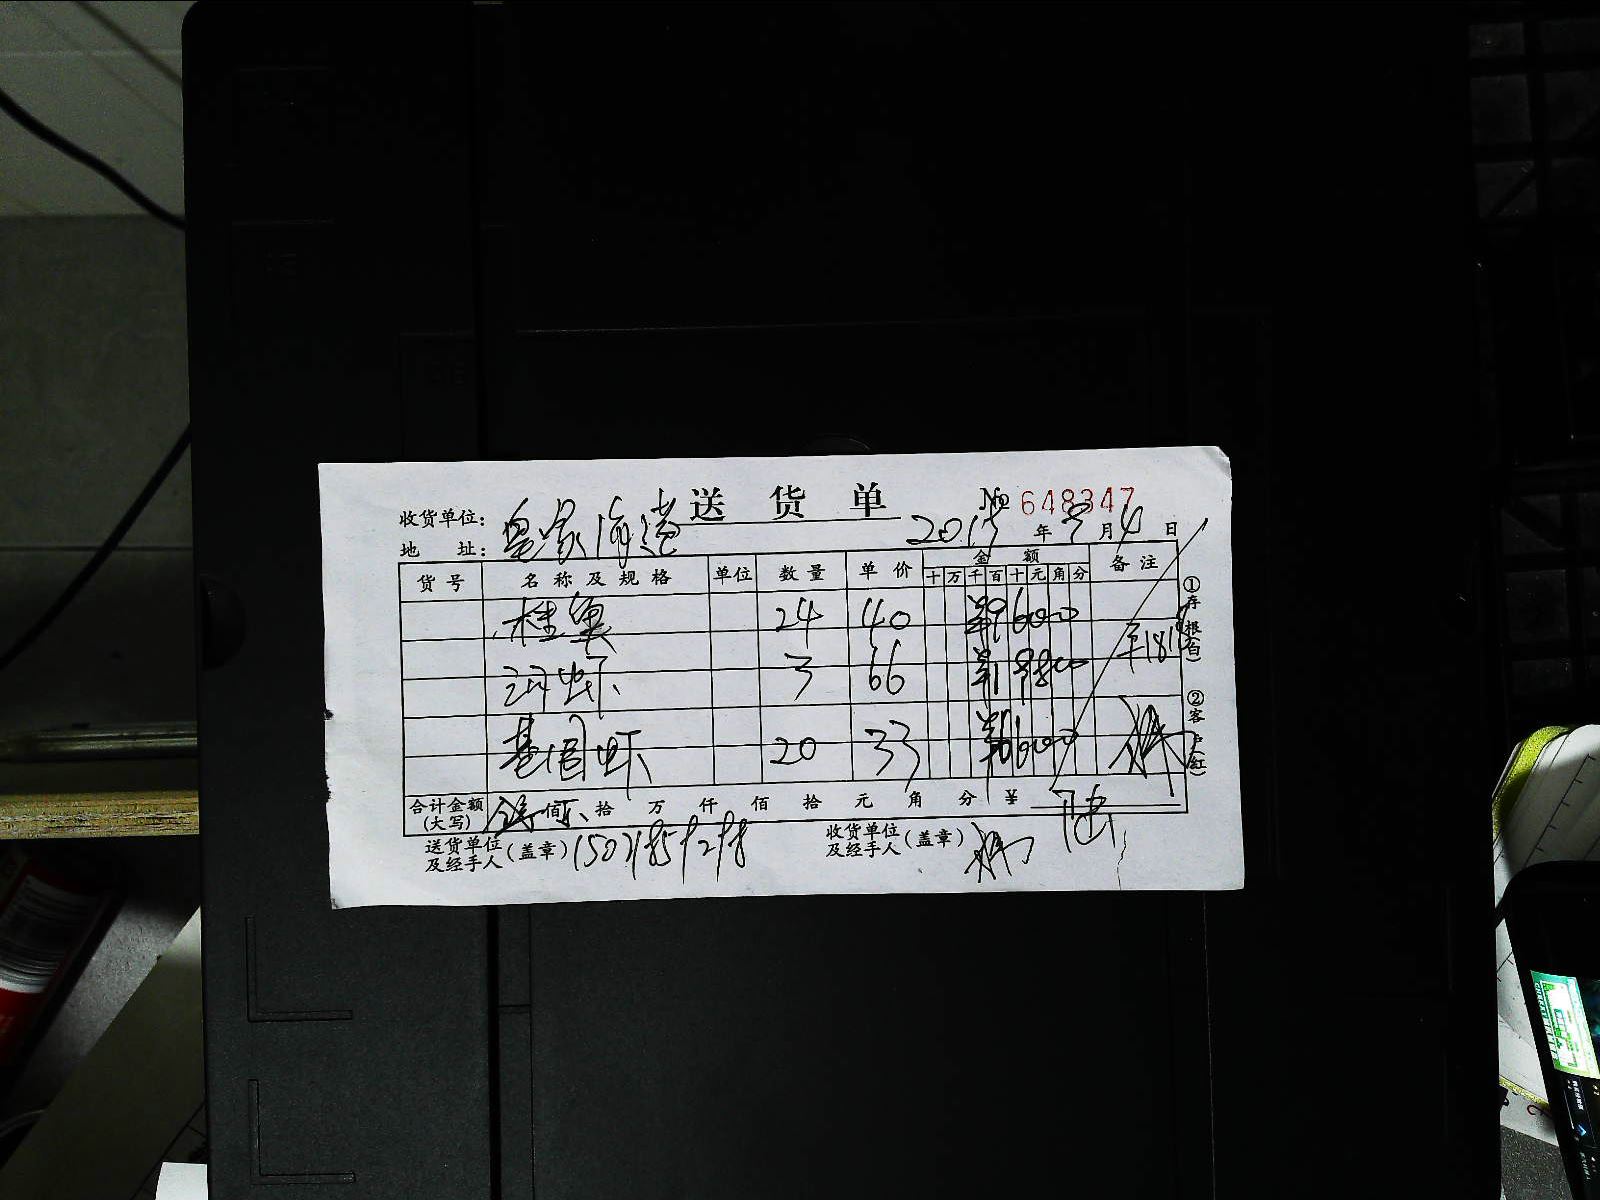 送货单 № 648347
收货单位: 皇家海港 2015年3月4日
地 址:
货号 名称及规格 单位 数量 单价 金额 备注
十 万 千 百 十 元 角 分
桂鱼 24 40 96000
河虾 3 66 19800
基围虾 20 33 66000
1818
合计金额 (大写) 佰 拾 万 仟 佰 拾 元 角 分 ¥
送货单位及经手人 (盖章) 收货单位及经手人 (盖章)
①存根(白) ②客户(红)